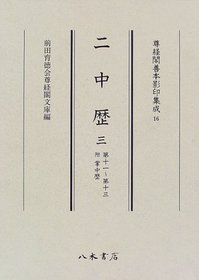 尊経閣善本影印集成 16
二中歴 三
第十一~第十三
附 掌中歴
前田育徳会尊経閣文庫編
八木書店